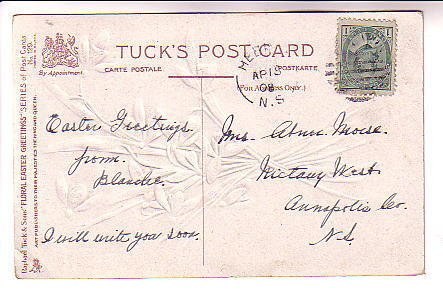 TUCK'S POST CARD
CARTE POSTALE
POSTKARTE.
By Appointment.
(For Address Only.)
AP 15
08
N.S
1
1
Raphael Tuck & Sons' "FLORAL EASTER GREETINGS" SERIES of Post Cards
No. 120.
ART PUBLISHERS TO THEIR MAJESTIES THE KING AND QUEEN.
Easter Greetings.
from.
Blanche.
I will write you soon.
Mrs. Abner Morse.
Nictaux West.
Annapolis Co.
N.S.